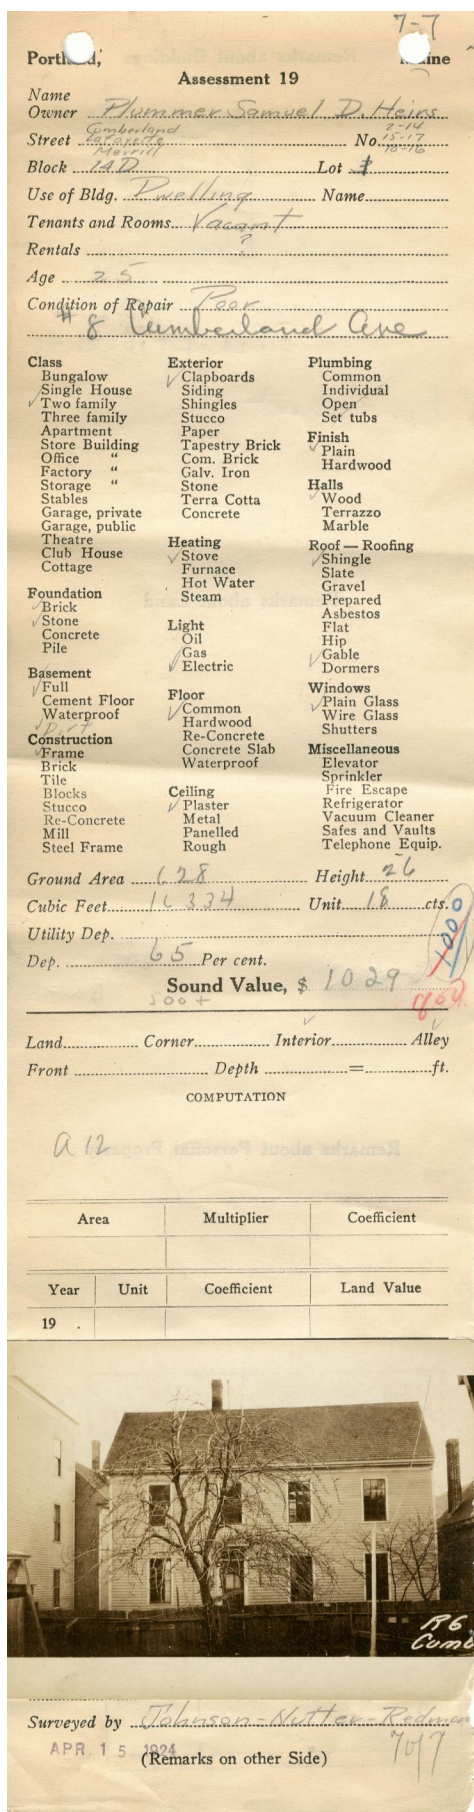 7-7
Portland, Maine
Assessment 19
Name
Owner Plummer Samuel D. Heirs
Cumberland 2-14
Street Lafayette No. 15-17
Merrill 10-16
Block 14D Lot 1
Use of Bldg. Dwelling Name
Tenants and Rooms Vacant
Rentals ?
Age 25
Condition of Repair Poor
# 8 Cumberland Ave
Class
Bungalow
Single House
✓ Two family
Three family
Apartment
Store Building
Office "
Factory "
Storage "
Stables
Garage, private
Garage, public
Theatre
Club House
Cottage
Foundation
✓ Brick
✓ Stone
Concrete
Pile
Basement
✓ Full
Cement Floor
Waterproof
✓ Dirt
Construction
✓ Frame
Brick
Tile
Blocks
Stucco
Re-Concrete
Mill
Steel Frame
Exterior
✓ Clapboards
Siding
Shingles
Stucco
Paper
Tapestry Brick
Com. Brick
Galv. Iron
Stone
Terra Cotta
Concrete
Heating
✓ Stove
Furnace
Hot Water
Steam
Light
Oil
✓ Gas
Electric
Floor
✓ Common
Hardwood
Re-Concrete
Concrete Slab
Waterproof
Ceiling
✓ Plaster
Metal
Panelled
Rough
Plumbing
Common
Individual
Open
Set tubs
Finish
✓ Plain
Hardwood
Halls
✓ Wood
Terrazzo
Marble
Roof — Roofing
✓ Shingle
Slate
Gravel
Prepared
Asbestos
Flat
Hip
✓ Gable
Dormers
Windows
✓ Plain Glass
Wire Glass
Shutters
Miscellaneous
Elevator
Sprinkler
Fire Escape
Refrigerator
Vacuum Cleaner
Safes and Vaults
Telephone Equip.
Ground Area 628 Height 26
Cubic Feet 16334 Unit 18 cts.
Utility Dep.
1000
Dep. 65 Per cent.
Sound Value, $ 1029
500+ 800
Land Corner Interior ✓ Alley ✓
Front Depth = ft.
COMPUTATION
A 12
Area Multiplier Coefficient
Year Unit Coefficient Land Value
19 .
R6
Cumb
Surveyed by Johnson-Nutter-Redman
APR. 15 1924
(Remarks on other Side)
7 of 7